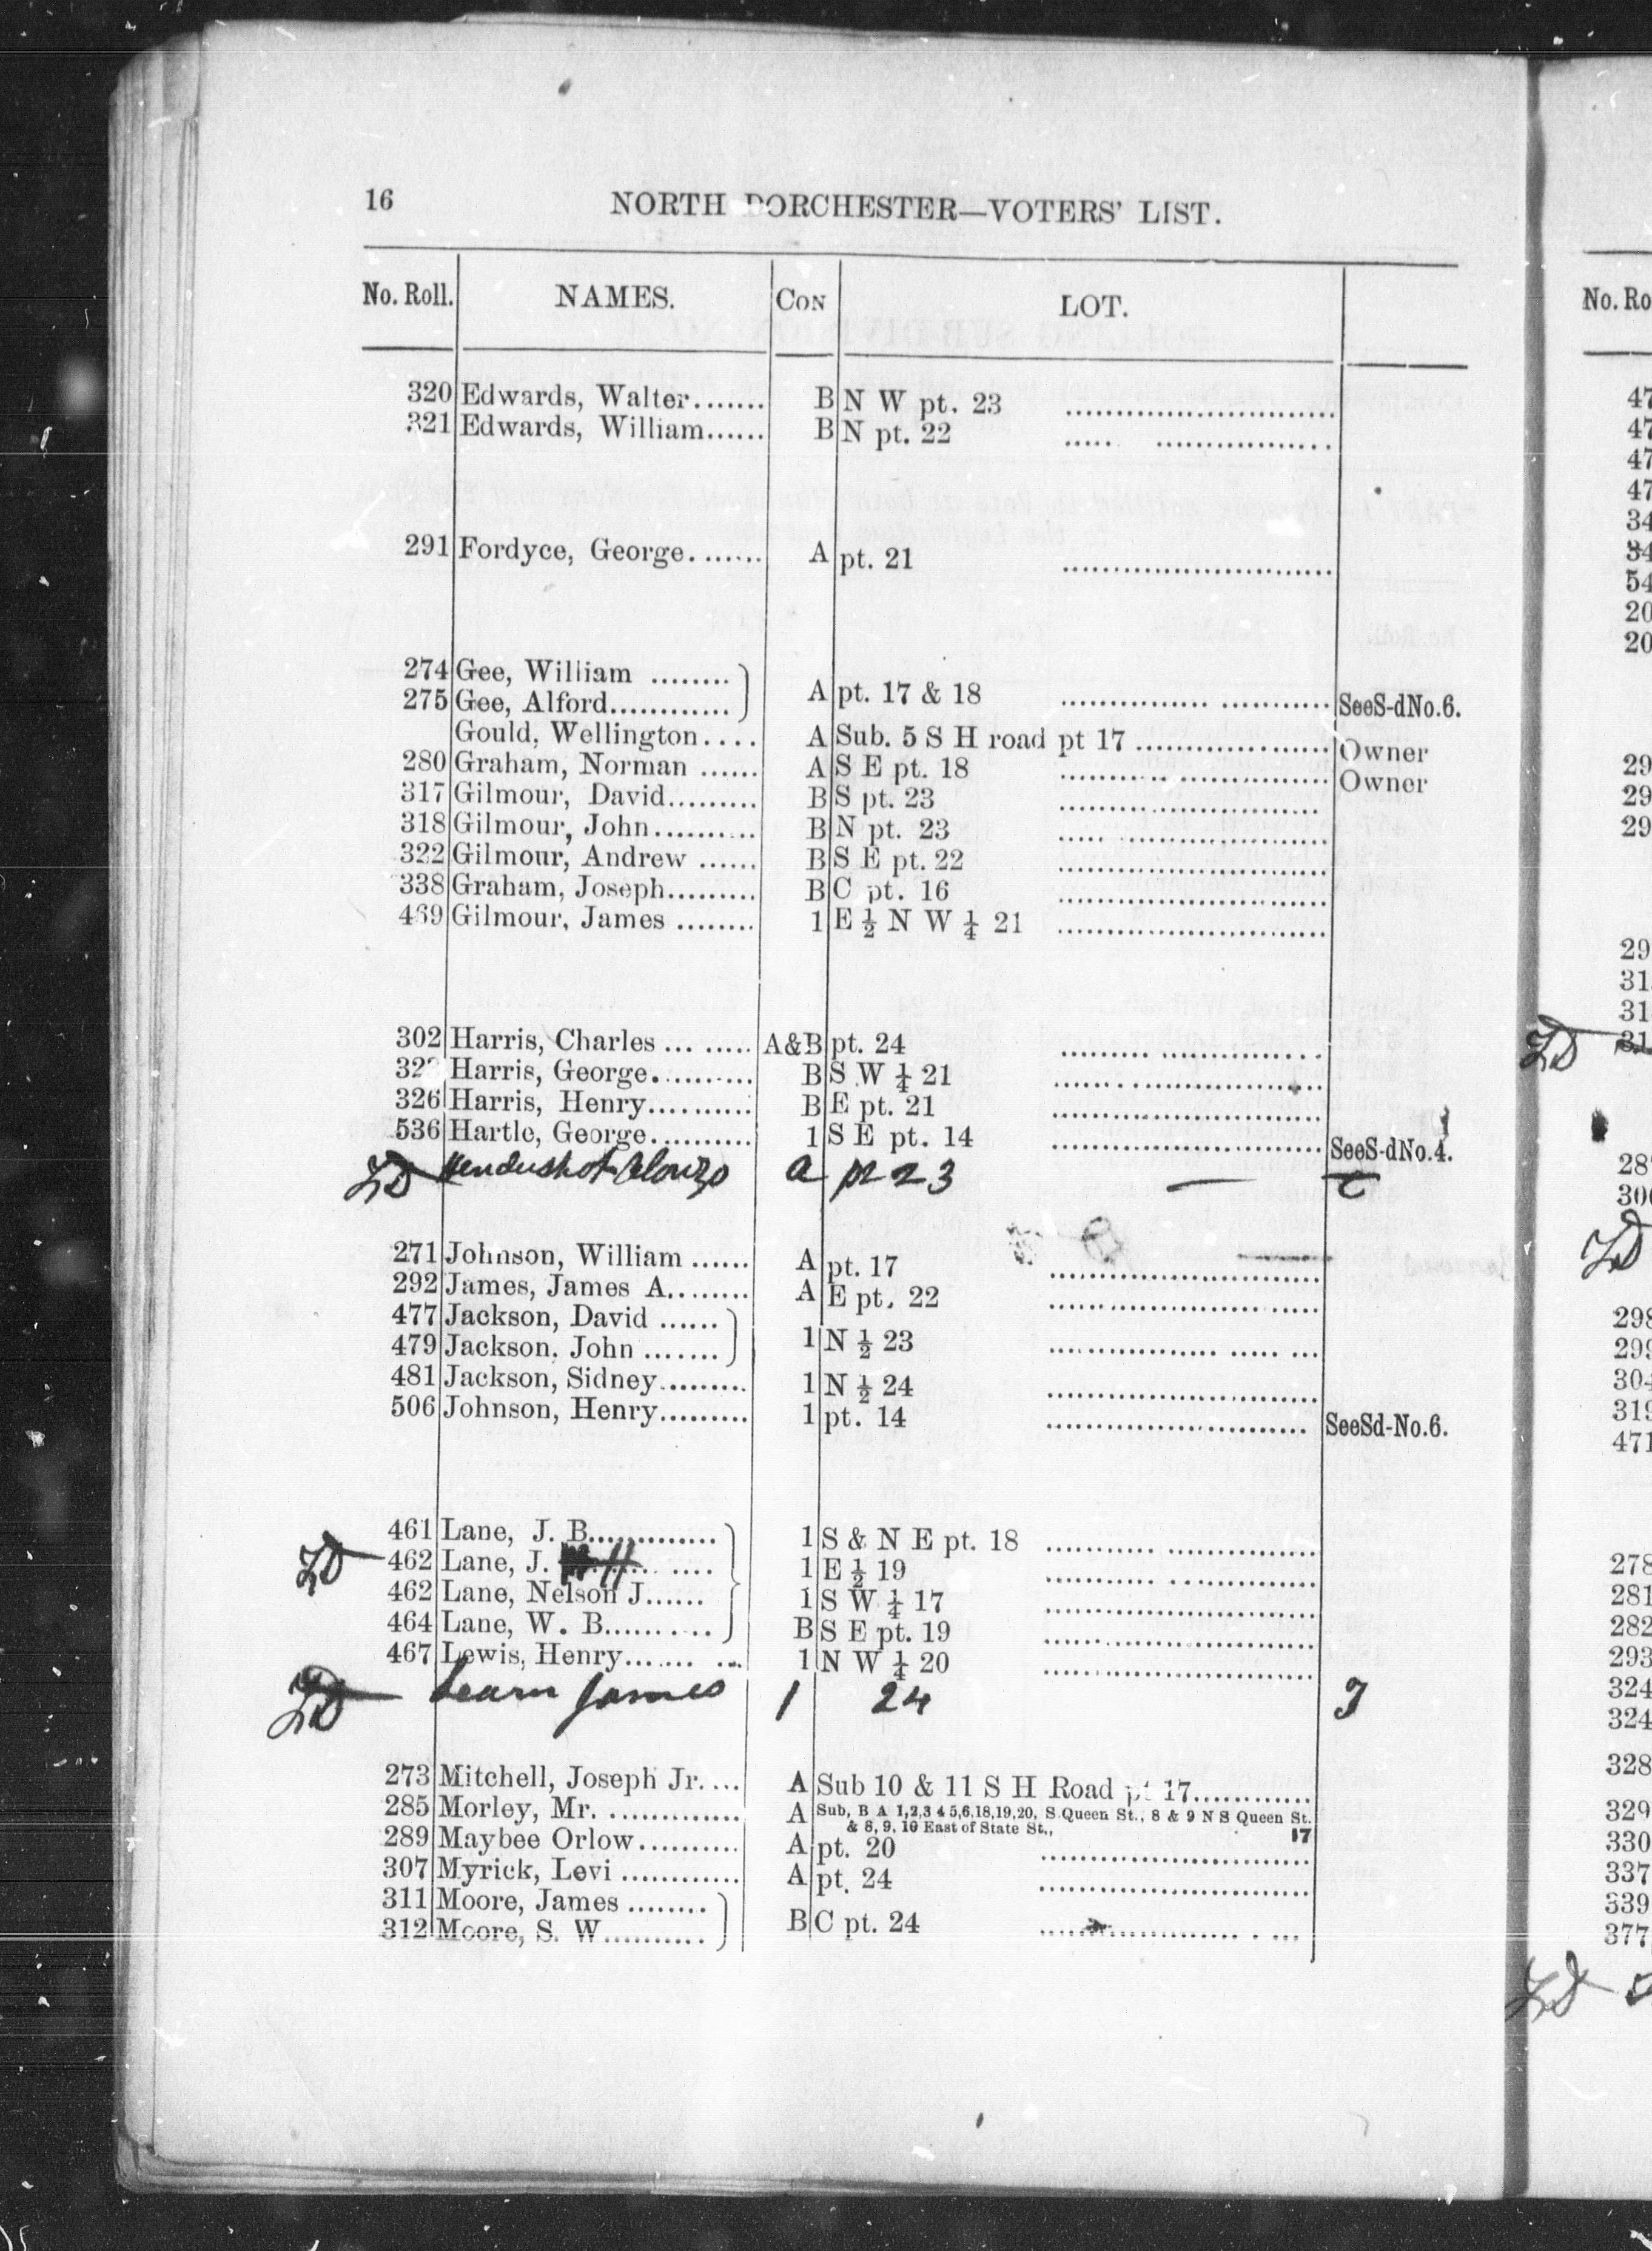 16 NORTH DORCHESTER—VOTERS' LIST.
No. Roll. NAMES. CON LOT.
320 Edwards, Walter....... B N W pt. 23
321 Edwards, William...... B N pt. 22
291 Fordyce, George. ...... A pt. 21
274 Gee, William ........
275 Gee, Alford............ A pt. 17 & 18 SeeS-dNo.6.
Gould, Wellington.... A Sub. 5 S H road pt 17 Owner
280 Graham, Norman ...... A S E pt. 18 Owner
317 Gilmour, David......... B S pt. 23
318 Gilmour, John.......... B N pt. 23
322 Gilmour, Andrew ...... B S E pt. 22
338 Graham, Joseph......... B C pt. 16
469 Gilmour, James ........ 1 E ½ N W ¼ 21
302 Harris, Charles ... ..... A&B pt. 24
32 Harris, George.......... B S W ¼ 21
326 Harris, Henry.......... B E pt. 21
536 Hartle, George.......... 1 S E pt. 14 SeeS-dNo.4.
Hendershot Alonzo a pt 23 —
271 Johnson, William ...... A pt. 17
292 James, James A........ A E pt. 22
477 Jackson, David ......
479 Jackson, John ....... 1 N ½ 23
481 Jackson, Sidney......... 1 N ½ 24
506 Johnson, Henry......... 1 pt. 14 SeeSd-No.6.
461 Lane, J. B............. 1 S & N E pt. 18
462 Lane, J. H .... 1 E ½ 19
462 Lane, Nelson J...... 1 S W ¼ 17
464 Lane, W. B......... B S E pt. 19
467 Lewis, Henry....... ... 1 N W ¼ 20
Learn James 1 24
273 Mitchell, Joseph Jr.... A Sub 10 & 11 S H Road pt 17............
285 Morley, Mr. ............ A Sub, B A 1,2,3 4 5,6,18,19,20, S Queen St., 8 & 9 N S Queen St.
& 8, 9, 10 East of State St., 17
289 Maybee Orlow.......... A pt. 20
307 Myrick, Levi ............ A pt. 24
311 Moore, James ........
312 Moore, S. W.......... B C pt. 24
No. Ro